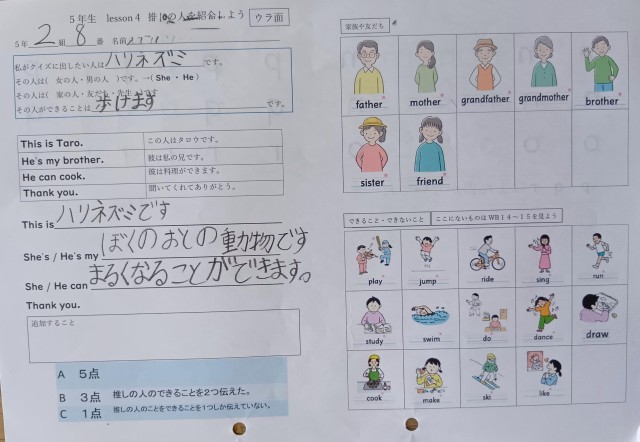 5年生 lesson4 推しの人を紹介しよう ウラ面
5年 2組 8番 名前
私がクイズに出したい人は ハリネズミ です。
その人は( 女の人・男の人 )です。→( She ・ He )
その人は( 家の人・友だち・先生 )です
その人ができることは 歩けます です。
This is Taro. この人はタロウです。
He's my brother. 彼は私の兄です。
He can cook. 彼は料理ができます。
Thank you. 聞いてくれてありがとう。
This is ハリネズミです
She's / He's my ぼくのおとの動物です
She / He can まるくなることができます。
Thank you.
追加すること
A 5点
B 3点 推しの人のできることを2つ伝えた。
C 1点 推しの人のことをできることを1つしか伝えていない。
家族や友だち
father mother grandfather grandmother brother
sister friend
できること・できないこと ここにないものはWB14~15を見よう
play jump ride sing run
study swim do dance draw
cook make ski like